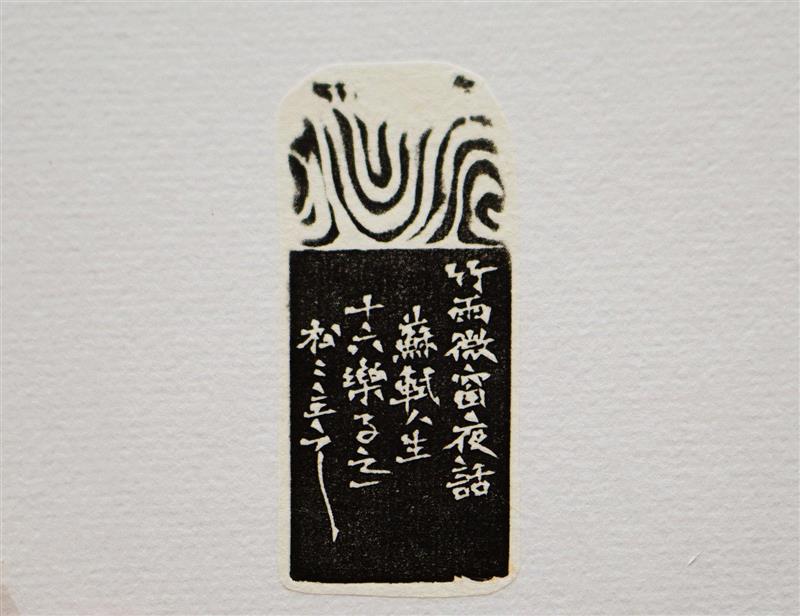 竹雨微窗夜話
蘇軾人生
十六樂事之一
松〻立